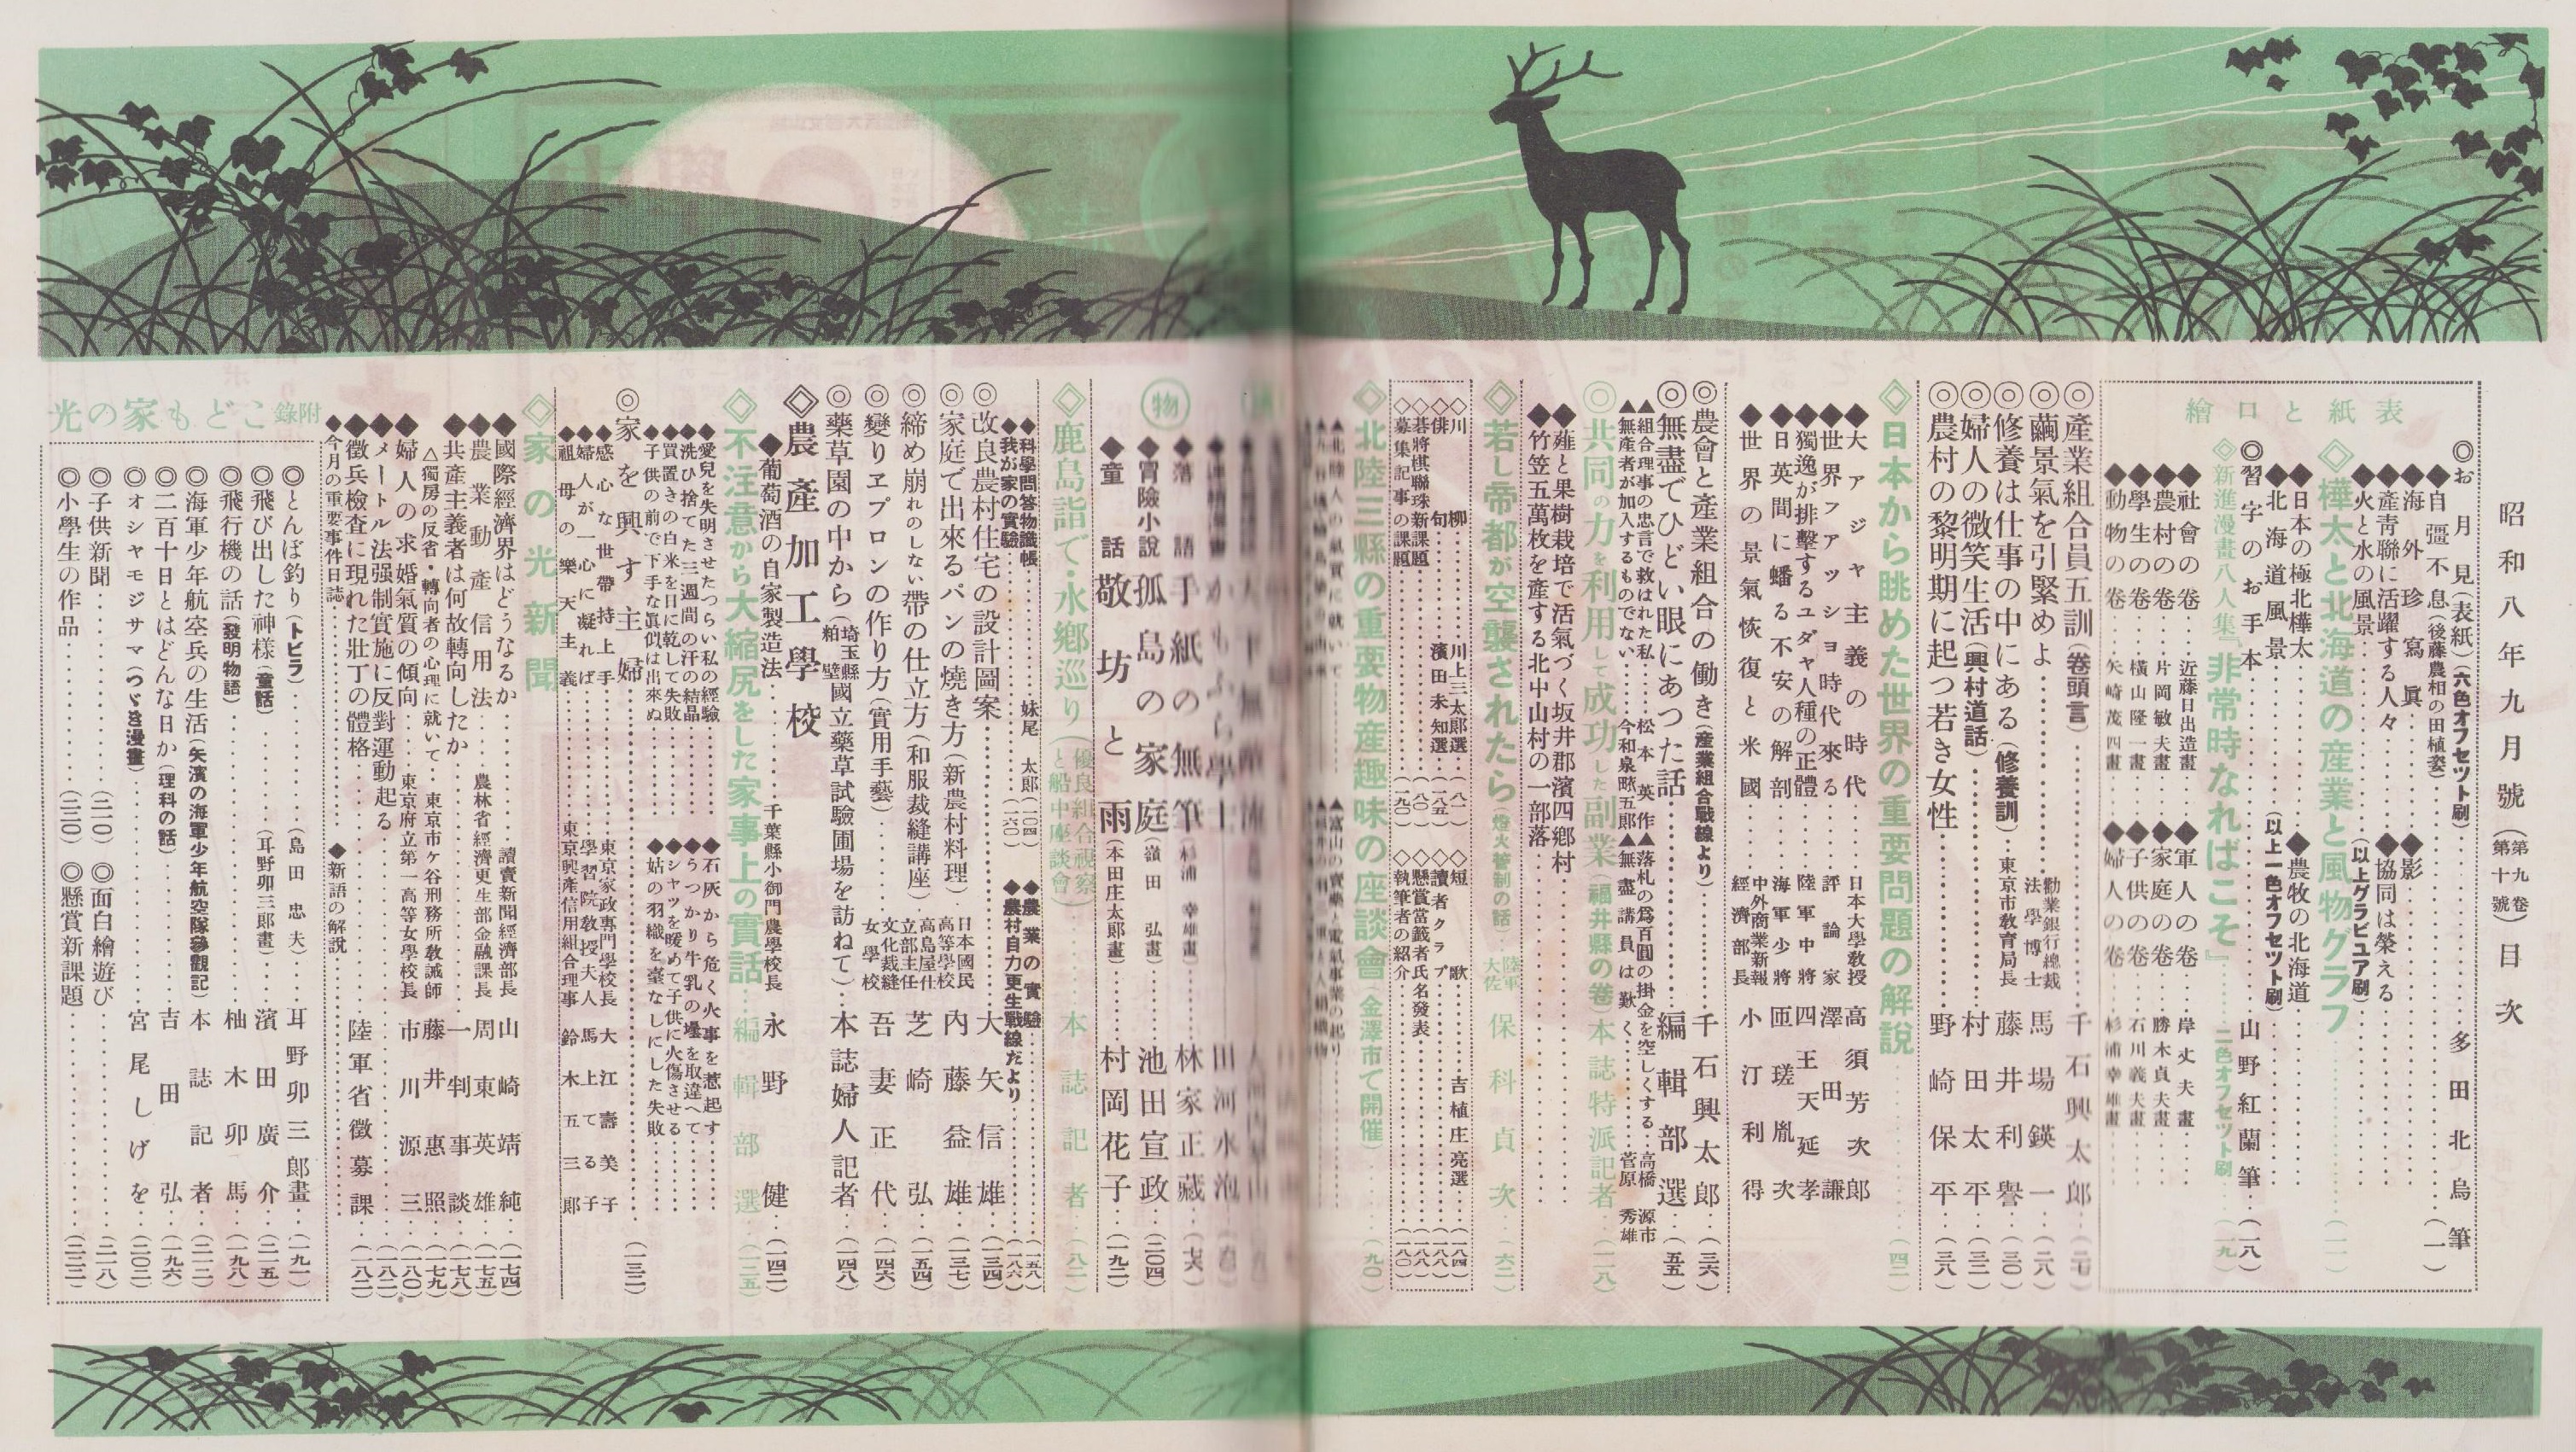 昭和八年九月號（第九卷第十號）目次
表紙と口繪
◎お月見（表紙）（六色オフセット刷）……多田北烏筆……（一）
◆自彊不息（後藤農相の田植姿）
◆海外珍寫眞
◆影
◆產靑聯に活躍する人々
◆協同は榮える
◆火と水の風景
（以上グラビュア刷）
◇樺太と北海道の產業と風物グラフ……（一一）
◆日本の極北樺太
◆農牧の北海道
◆北海道風景
（以上一色オフセット刷）
◎習字のお手本……山野紅蘭筆……（一八）
◇新進漫畫八人集『非常時なればこそ』……二色オフセット刷……（一九）
◆社會の卷……近藤日出造畫
◆軍人の卷……岸丈夫畫
◆農村の卷……片岡敏夫畫
◆家庭の卷……勝木貞夫畫
◆學生の卷……橫山隆一畫
◆子供の卷……石川義夫畫
◆動物の卷……矢崎茂四畫
◆婦人の卷……杉浦幸雄畫
◎產業組合員五訓（卷頭言）……千石興太郎
◎繭景氣を引緊めよ……勸業銀行總裁法學博士 馬場鍈一……（二八）
◎修養は仕事の中にある（修養訓）……東京市敎育局長 藤井利譽……（三〇）
◎婦人の微笑生活（興村道話）……村田太平……（三三）
◎農村の黎明期に起つ若き女性……野崎保平……（三八）
◇日本から眺めた世界の重要問題の解說……（四二）
◆大アジヤ主義の時代……日本大學敎授 高須芳次郎
◆世界フアツシヨ時代來る……評論家 澤田謙
◆獨逸が排擊するユダヤ人種の正體……陸軍中將 四王天延孝
◆日英間に蟠る不安の解剖……海軍少將 匝瑳胤次
◆世界の景氣恢復と米國……中外商業新報經濟部長 小汀利得
◎農會と產業組合の働き（產業組合戰線より）……千石興太郎……（三六）
◎無盡でひどい眼にあつた話……編輯部選……（五五）
▲組合理事の忠言で救はれた私……松本英作
▲落札の爲百圓の掛金を空しくする……高橋源市
▲無產者が加入するものでない……今和泉畩五郎
▲無盡講員は歎く……菅原秀雄
◎共同の力を利用して成功した副業（福井縣の卷）本誌特派記者……（二八）
◆薤と果樹栽培で活氣づく坂井郡濱四鄉村
◆竹笠五萬枚を產する北中山村の一部落
◇若し帝都が空襲されたら（燈火管制の話）……陸軍大佐 保科貞次……（六二）
◇川柳……川上三太郎選……（八一）
◇短歌……吉植庄亮選……（一八四）
◇俳句……濱田未知選……（一八五）
◇讀者クラブ……（一八八）
◇碁將棋聯珠新課題……（八〇）
◇懸賞當籤者氏名發表……（一八八）
◇募集記事の課題……（一九〇）
◇執筆者の紹介……（一八〇）
◇北陸三縣の重要物產趣味の座談會（金澤市で開催）……（九〇）
▲北陸人の氣質に就いて
▲富山の賣藥と電氣事業の起り
物
田河水泡
◆落語 手紙の無筆（杉浦幸雄畫）……林家正藏
◆冒險小說 孤島の家庭（嶺田弘畫）……池田宣政……（二〇四）
◆童話 敬坊と雨（本田庄太郎畫）……村岡花子……（一九二）
◇鹿島詣で・水鄉巡り（優良組合視察と船中座談會）……本誌記者……（八二）
◆科學問答物識帳……妹尾太郎（一〇四）
◆農業の實驗……（一五八）
◆我が家の實驗……（一六〇）
◆農村自力更生戰線だより……（一八六）
◎改良農村住宅の設計圖案……大矢信雄……（一三四）
◎家庭で出來るパンの燒き方（新農村料理）……日本國民高等學校 內藤益雄……（一三七）
◎締め崩れのしない帶の仕立方（和服裁縫講座）……高島屋仕立部主任 芝崎弘……（一五四）
◎變りエプロンの作り方（實用手藝）……文化裁縫女學校 吾妻正代……（一四六）
◎藥草園の中から（埼玉縣粕壁國立藥草試驗圃場を訪ねて）……本誌婦人記者……（一四八）
◇農產加工學校
◆葡萄酒の自家製造法……千葉縣小御門農學校長 永野健……（一四二）
◇不注意から大縮尻をした家事上の實話……編輯部選……（一二五）
◆愛兒を失明させたつらい私の經驗
◆石灰から危く火事を惹起す
◆洗ひ捨てた三週間の汗の結晶
◆うつかり牛乳の壜を取違へて
◆買置きの白米を日に乾して失敗
◆シャツを暖めて子供に火傷させる
◆子供の前で下手な眞似は出來ぬ
◆姑の羽織を臺なしにした失敗
◎家を興す主婦……（一三二）
◆感心な世帶持上手……東京家政專門學校長 大江壽美子
◆婦人が一心に凝れば……學習院敎授夫人 馬上てる子
◆祖母の樂天主義……東京興產信用組合理事 鈴木五三郎
◇家の光新聞
◆國際經濟界はどうなるか……讀賣新聞經濟部長 山崎靖純……（一七四）
◆農業動產信用法……農林省經濟更生部金融課長 周東英雄……（一七五）
◆共產主義者は何故轉向したか……一判事談……（一七八）
△獨房の反省・轉向者の心理に就いて……東京市ケ谷刑務所敎誡師 藤井惠照……（一七九）
◆婦人の求婚氣質の傾向……東京府立第一高等女學校長 市川源三……（一八〇）
◆メートル法强制實施に反對運動起る……（一八二）
◆徵兵檢査に現れた壯丁の體格……陸軍省徵募課……（一八二）
◆今月の重要事件日誌
◆新語の解說
附錄 こどもの家の光
◎とんぼ釣り（トビラ）……（島田忠夫）……耳野卯三郞畫……（一九一）
◎飛び出した神樣（童話）……（耳野卯三郞畫）……濱田廣介……（二一五）
◎飛行機の話（發明物語）……柚木卯馬……（一九八）
◎海軍少年航空兵の生活（矢濱の海軍少年航空隊參觀記）……本誌記者……（二一二）
◎二百十日とはどんな日か（理科の話）……吉田弘……（一九六）
◎オシャモジサマ（つゞき漫畫）……宮尾しげを……（二〇二）
◎子供新聞……（二一〇）
◎面白繪遊び……（二一八）
◎小學生の作品……（二二〇）
◎懸賞新課題……（二二二）